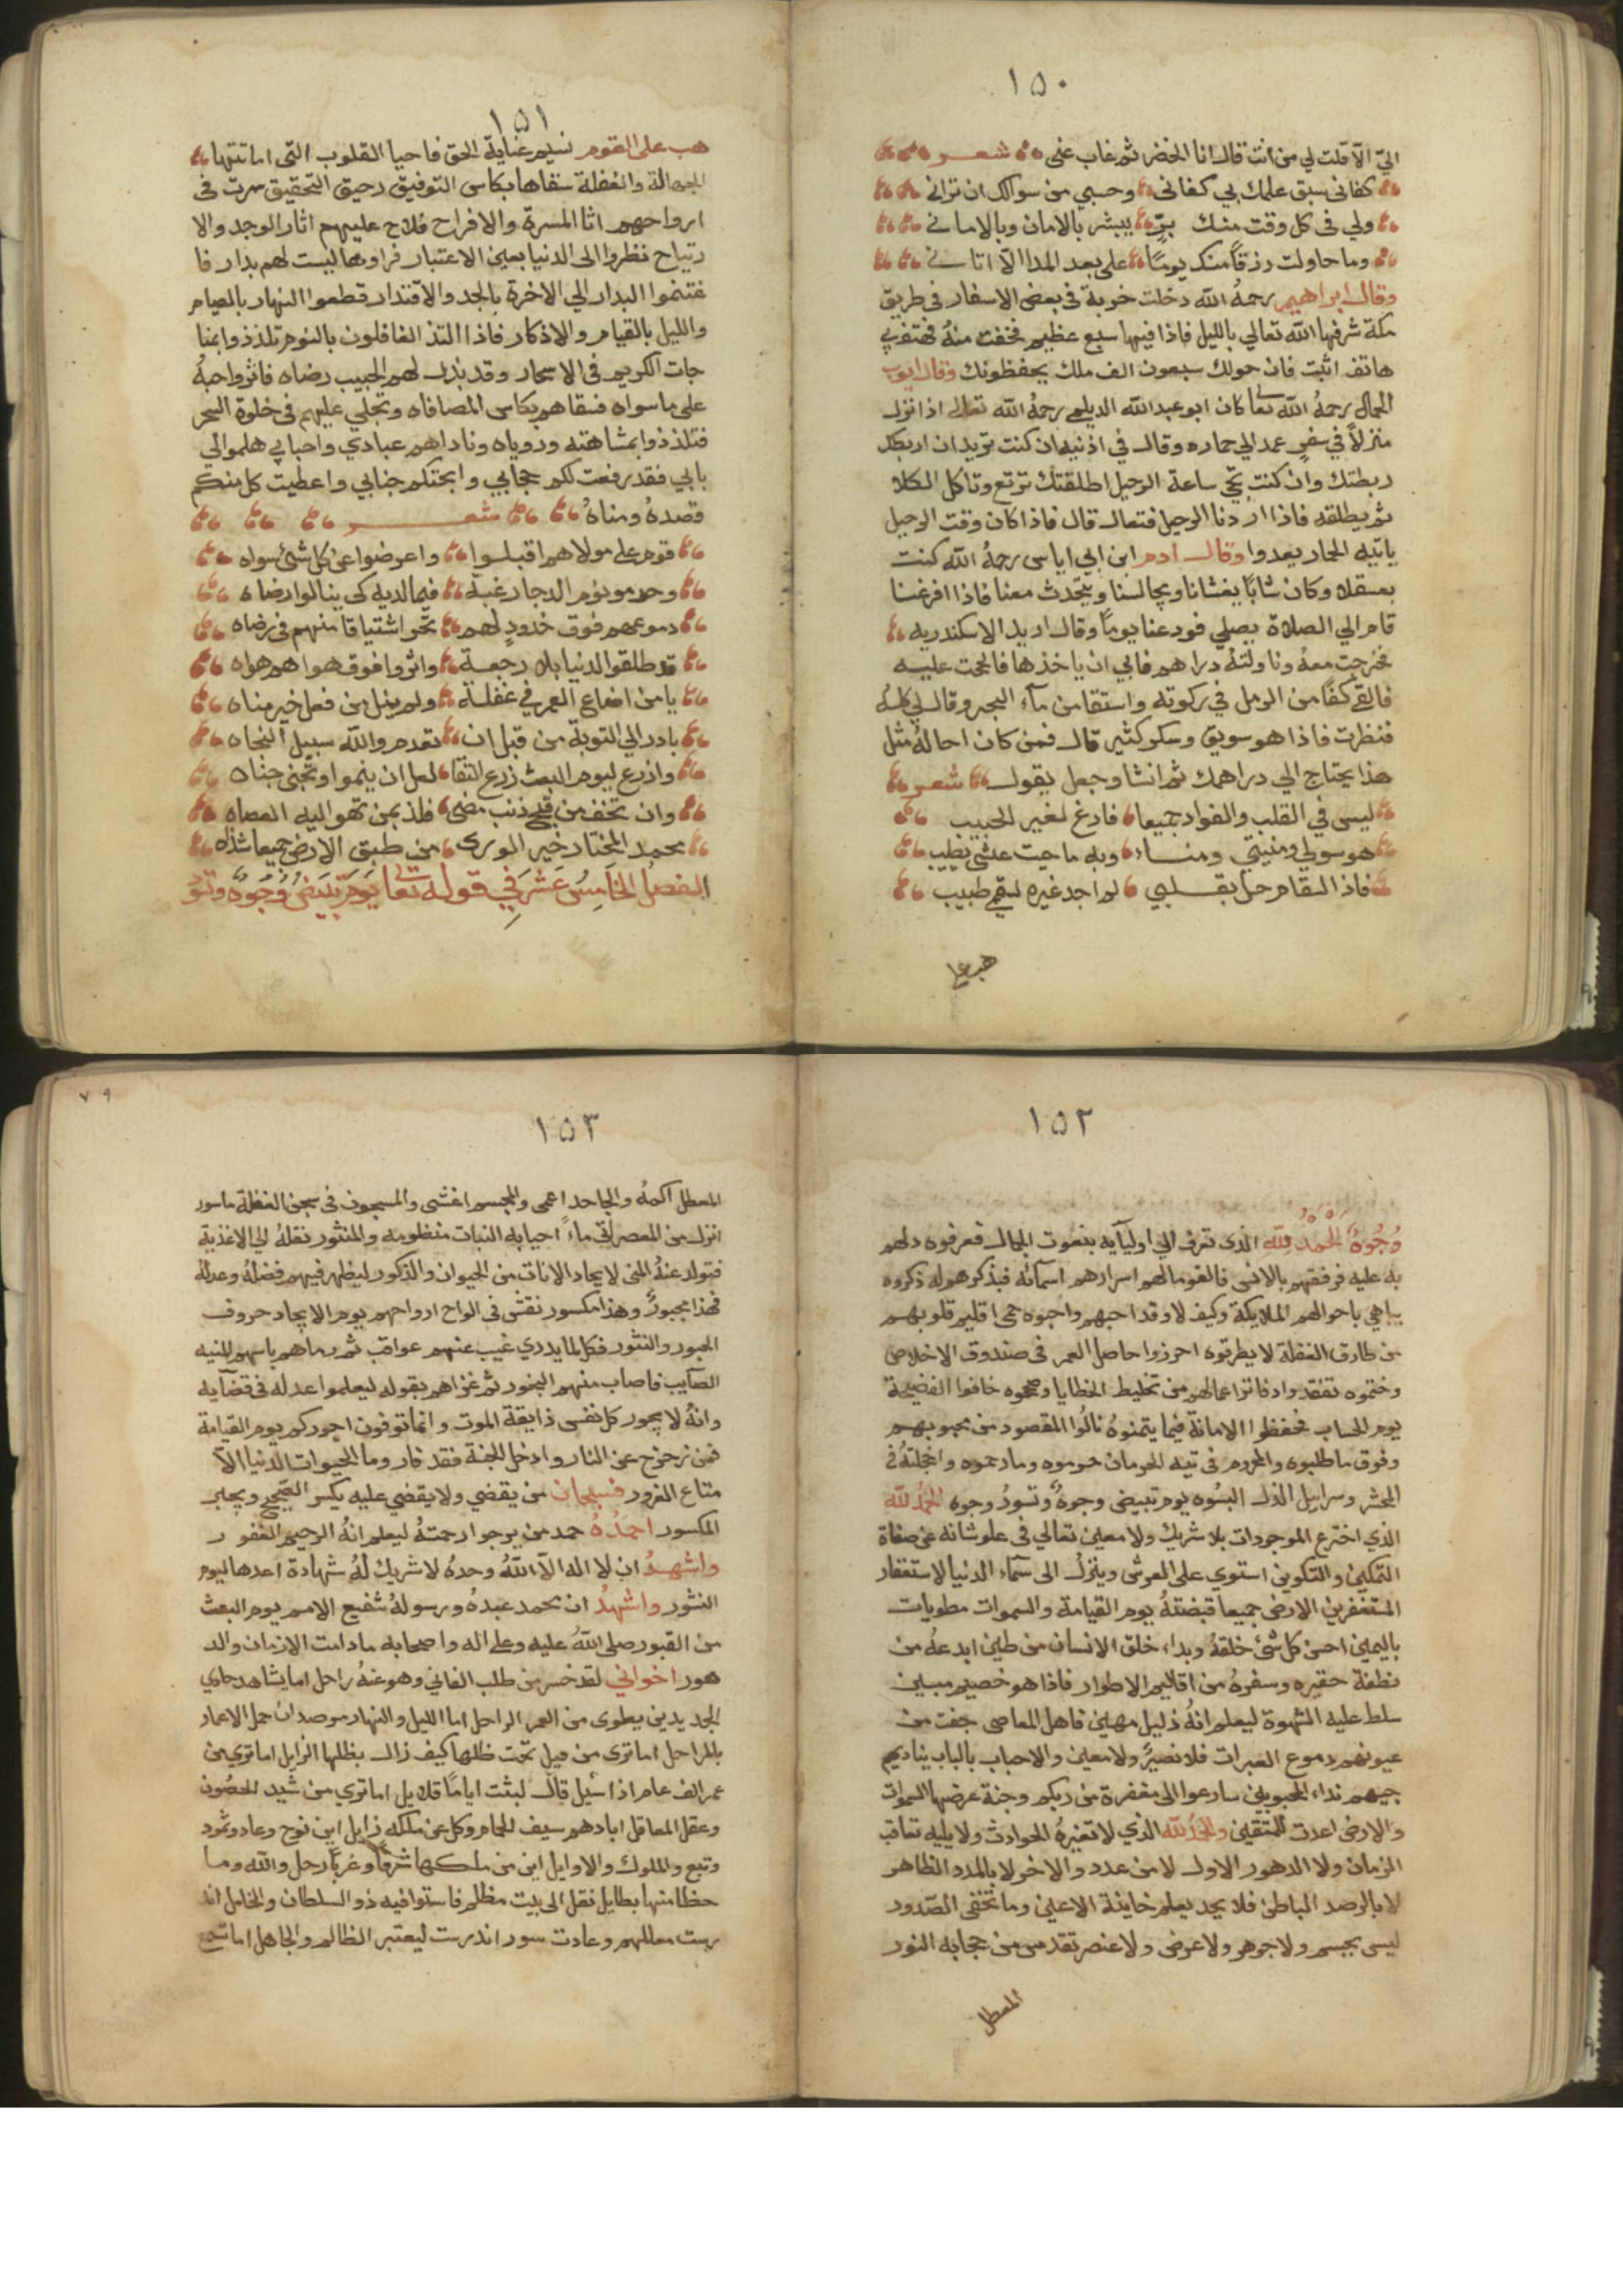 ١٥٠
اليّ الّا قلت لي من انت قال انا الخضر ثم غاب عني شعر
كفاني سبق علمك بي كفاني وحسبي من سوالك ان تراني
ولي في كل وقت منك برّ يبشر بالامان وبالاماني
وما حاولت رزقاً منك يومًا على بعد المدا الّا اتاني
وقال ابراهيم رحمهُ الله دخلت خربة في بعض الاسفار في طريق
مكة شرفها الله تعالي بالليل فاذا فيها سبع عظيم فخفت منهُ فهتف بي
هاتف اثبت فان حولك سبعون الف ملك يحفظونك وقال ايوب
الجمال رحمهُ الله تعا كان ابو عبد الله الديلمي رحمهُ الله تعالى اذا نزل
منزلاً في سفرٍ عمد الي حماره وقال في اذنيه ان كنت تريد ان اربطك
ربطتك وان كنت تجي ساعة الرحيل اطلقتك ترتع وتاكل الكلا
ثم يطلقه فاذا اردنا الرحيل فتعال قال فاذا كان وقت الرحيل
ياتيه الحمار يعدوا وقال ادم ابن ابي اياس رحمهُ الله كنت
بعسقلان وكان شابًا يغشانا ويجالسنا ويتحدث معنا فاذا افرغنا
قام الي الصلاة يصلي فودعنا يوماً وقال اريد الاسكندريه
فخرجت معهُ وناولتهُ دراهم فابي ان ياخذها فالححت عليه
فالقي كفاً من الرمل في ركوته واستقا من مآء البحر وقال لي كلهُ
فنظرت فاذا هو سويق وسكر كثير قال فمن كان احالهُ مثل
هذا يحتاج الي دراهمك ثم انشا وجعل يقول شعر
ليس في القلب والفواد جميعا فارغ لغير الحبيب
هو سولي ومنيتي ومناء وبه ما حيت عشي يطيب
فاذا السقام حل بقلبي لم اجد غيره لسقمي طبيب
هب على
١٥١
هب على القوم نسيم عناية الحق فاحيا القلوب التي اماتتها
الجهالة والغفلة سقاها بكاس التوفيق رحيق التحقيق سرت في
ارواحهم اثا المسرة والافراح فلاح عليهم اثار الوجد والا
رتياح نظروا الى الدنيا بعين الاعتبار فراوها ليست لهم بدار فا
غتنموا البدار الي الاخرة بالجد والاقتدار قطعوا النهار بالصيام
والليل بالقيام والاذكار فاذا التذ الغافلون بالنوم تلذذوا بمنا
جات الكريم في الاسحار وقد بذل لهم الحبيب رضاه فاثروا حبهُ
على ما سواه فسقاهم بكاس المصافاه وتجلي عليهم في خلوة السحر
فتلذذوا بمشاهته وروياه وناداهم عبادي واحبابي هلموا الي
بابي فقد رفعت لكم حجابي وابحتكم جنابي واعطيت كل منكم
قصدهُ ومناهُ شعر
قوم على مولاهم اقبلوا واعرضوا عن كل شئ سواه
وحرموا نوم الدجا رغبة فيما لديه كي ينالوا رضاه
دموعهم فوق خدودٍ لهم تجر اشتياقا منهم في رضاه
قد طلقوا الدنيا بلا رجعة واثروا فوق هواهم هواه
يا من اضاع العمر في غفلة ولم ينل من فعل خير مناه
بادر الي التوبة من قبل ان تقدم والله سبيل النجاه
وازرع ليوم البعث زرع التقا لعل ان ينموا وتجني جناه
وان تخف من قبح ذنب مضى فلذ بمن تهوا اليه العصاه
محمد المختار خير الورى من طبق الارض جميعا شذاه
الفصل الخامس عشر في قوله تعا يوم تبيض وجوه وتسو
١٥٢
وُجُوهٌ الحمد لله الذي تعرف الي اوليآيه بنعوت الجمال فعرفوه دلهم
به عليه فرفقهم بالانس فالفوما لهم اسرارهم اسمآئه فبذكرهوله ذكروه
يباهي باحوالهم الملايكة وكيف لا وقد احبهم واحبوه حمى اقليم قلوبهم
من طارق الغفلة لا يطرقوه احرزوا حاصل العمر في صندوق الاخلاص
وختموه تفقدوا دفاتر اعمالهم من تخليط الخطايا وصححوه خافوا الفضيحة
يوم الحساب فحفظوا الامانة فيما يتمنوهُ نالُوا المقصود من محبوبهم
وفوق ما طلبوه والمحروم في تيه الحرمان حرموه وما رحموه واخجلتهُ في
المحشر وسرابيل الذل البسُوه يوم تبيض وجوهٌ وتسودُ وجوه الحمدُ لله
الذي اخترع الموجودات بلا شريك ولا معين تعالي في علو شانه عن صفاة
التمكين والتكوين استوي على العرش وينزلُ الى سمآء الدنيا لاستغفار
المستغفرين الارض جميعا قبضتهُ يوم القيامة والسموات مطويات
باليمين احسن كل شئ خلقهُ وبداء خلق الانسان من طين ابدعهُ من
نطفة حقيره وسفرهُ من اقاليم الاطوار فاذا هو خصيم مبين
سلط عليه الشهوة ليعلم انهُ ذليل مهين فاهل المعاصي جفت من
عيونهم دموع العبرات فلا نصيرً ولا معين والاحباب بالباب يناديهم
جيبهم نداء المحبوبين سارعوا الى مغفرة من ربكم وجنة عرضها السموات
والارض اعدت للمتقين والحمدُ لله الذي لا تغيرهُ الحوادث ولا يليه تعاقب
الزمان ولا الدهور الاول لا من عدد والاخر لا بالمدد الظاهر
لا بالرصد الباطن فلا يحد يعلم خاينة الاعين وما تخفي الصّدور
ليس بجسم ولا جوهر ولا عرض ولا عنصر تقدس من حجابه النور
المعطل
٧٩
١٥٣
المعطل اكمهُ والجاحد اعمى والمجسم اغشى والمسجون في سجن الغفلة ماسور
انزل من المعصرات ماءً احيا به النبات منظومه والمنثور نقلهُ الي الاغذية
فتولد عنهُ المني لايجاد الاناث من الحيوان والذكور ليظهر فيهم فضلهُ وعدلهُ
فهذا مجبورٌ وهذا مكسور نقش في الواح ارواحهم يوم الايجاد حروف
العبور والنثور فكل لما يدري غيب عنهم عواقب ثم رماهم باسهم المنيه
الصآيب فاصاب منهم النحور ثم عزاهم بقوله ليعلموا عدله في قضآيه
وانهُ لا يجور كل نفس ذايقة الموت وانما توفون اجوركم يوم القيامة
فمن زحزح عن النار وادخل الجنة فقد فار وما الحيوات الدنيا الّا
متاع الغرور فسبحان من يقضي ولا يقضي عليه يكسر الصّحيح ويجبر
المكسور احمدُهُ حمد من يرجوا رحمتهُ ليعلم انهُ الرحيم الغفور
واشهدُ ان لا اله الّا اللهُ وحدهُ لا شريك لهُ شهادة اعدها ليوم
النشور واشهدُ ان محمد عبدهُ ورسولهُ شفيع الامم يوم البعث
من القبور صلى اللهُ عليه وعلى اله واصحابه ما دامت الازمان والد
هور اخواني لقد خسر من طلب الفاني وهو عنهُ راحل اما يشاهد حادي
الجديدين يطوى من العمر الراحل اما الليل والنهار موصدان حمل الاعمار
بالمراحل اما ترى من قيل تحت ظلها كيف زال بظلها الزايل اما تري من
عمر الف عام اذا سُيل قال لبثت ايامًا قلايل اما تري من شيد الحصُون
وعقل المعاقل ابادهم سيف الحمام وكل عن ملكه زايل اين نوح وعاد وثمود
وتبع والملوك والاوايل اين من ملكها شرقًا وغربًا رحل والله وما
حظا منها بطايل نقل الى بيت مظلم فاستوا فيه ذو السلطان والخامل اند
رست معالمهم وعادت سور اندرست ليعتبر الظالم والجاهل اما تسمع